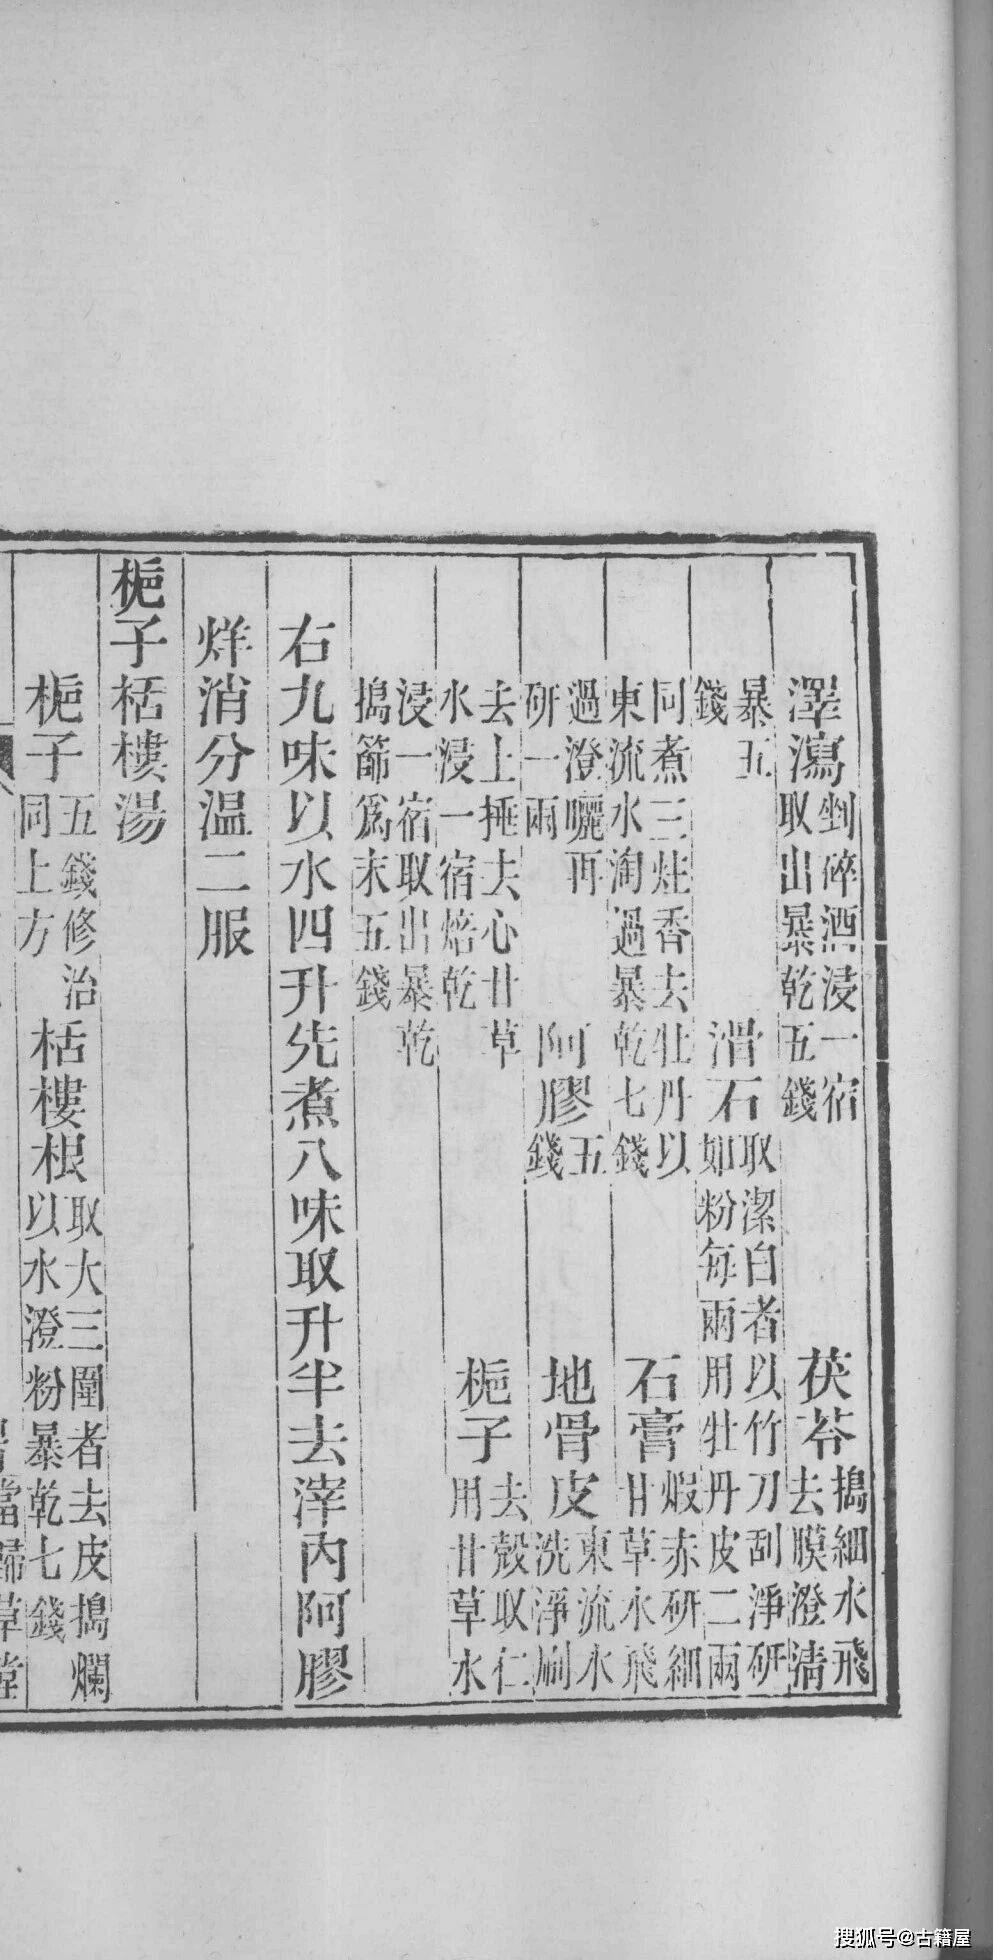 澤瀉剉碎酒浸一宿取出暴乾五錢 茯苓搗細水飛去膜澄清
暴五錢 滑石取潔白者以竹刀刮淨研如粉每兩用牡丹皮二兩
同煮三炷香去牡丹以東流水淘過暴乾七錢 石膏煆赤研細甘草水飛
過澄曬再研一兩 阿膠五錢 地骨皮東流水洗淨刷
去上捶去心甘草水浸一宿焙乾 梔子去殼取仁用甘草水
浸一宿取出暴乾搗篩爲末五錢
右九味以水四升先煮八味取升半去滓内阿膠
烊消分温二服
梔子栝樓湯
梔子五錢修治同上方 栝樓根取大三圍者去皮搗爛以水澄粉暴乾七錢
搜狐号@古籍屋